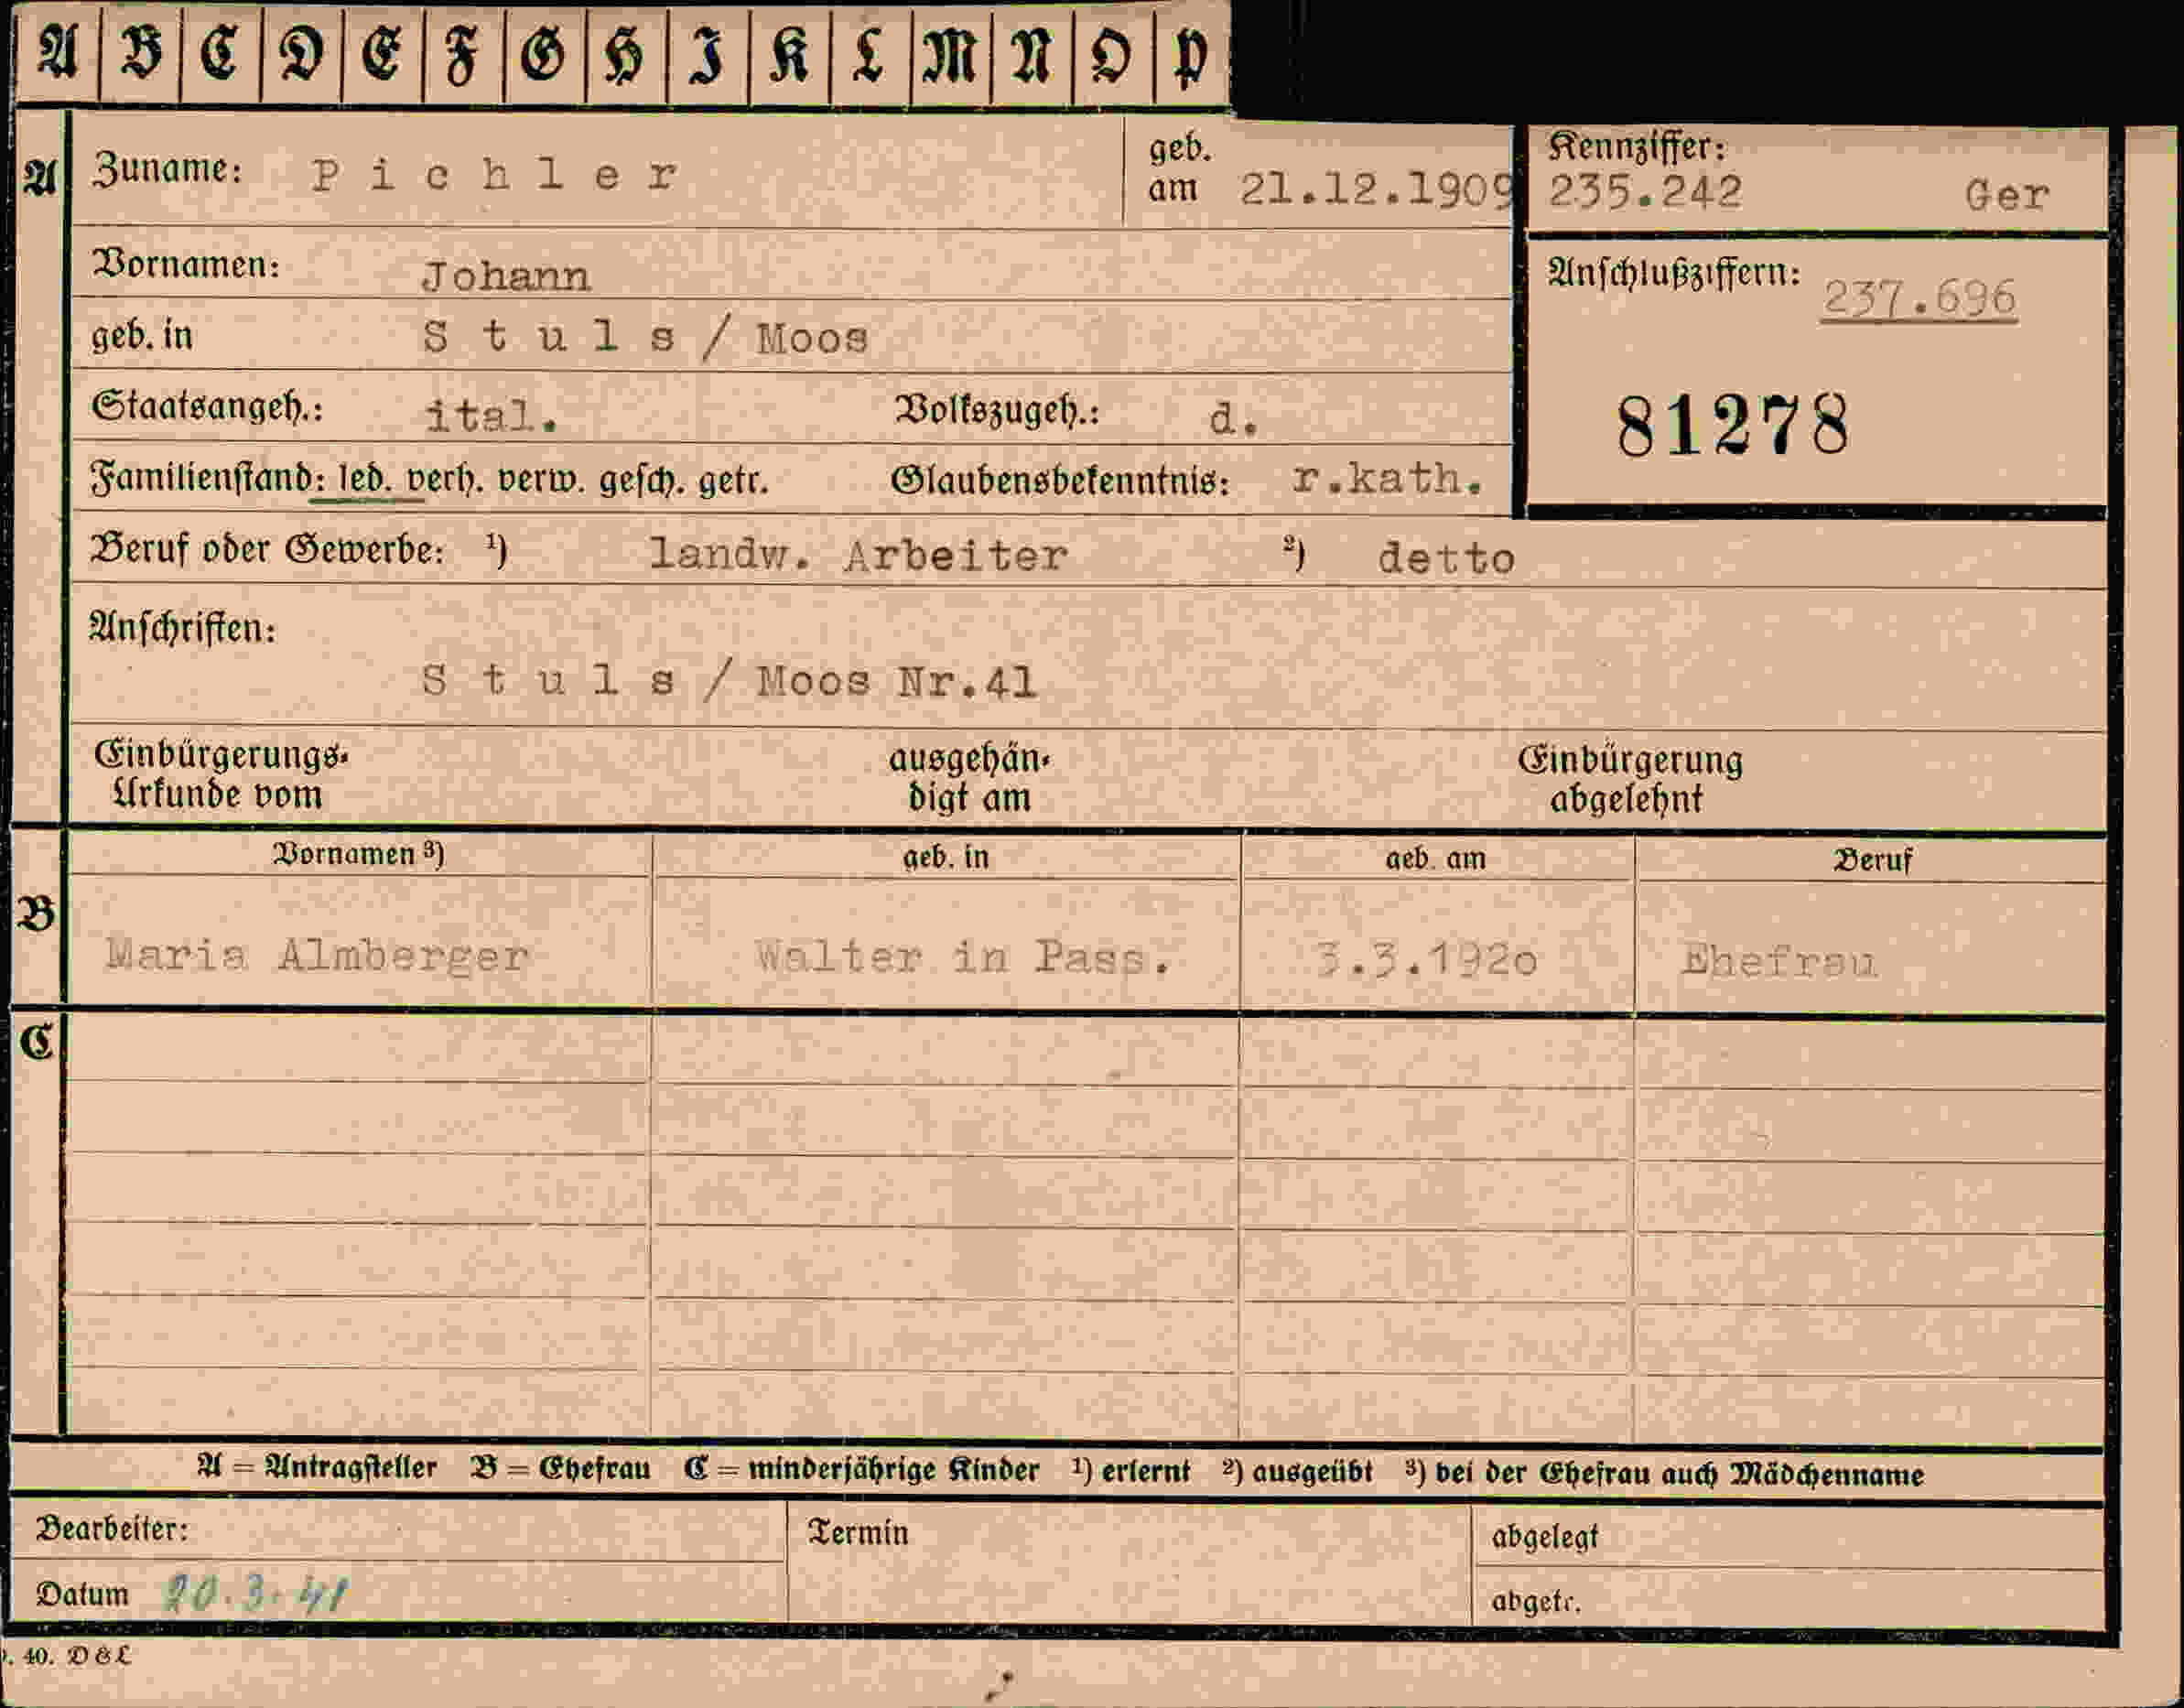 A B C D E F G H I K L M N O P
A Zuname: Pichler geb. am 21.12.1909 Kennziffer: 235.242 Ger
Vornamen: Johann Anschlußziffern: 237.696
geb. in Stuls / Moos
81278
Staatsangeh.: ital. Volkszugeh.: d.
Familienstand: led. verh. verw. gesch. getr. Glaubensbekenntnis: r.kath.
Beruf oder Gewerbe: ¹) landw. Arbeiter ²) detto
Anschriften:
Stuls / Moos Nr.41
Einbürgerungs- ausgehän- Einbürgerung
Urkunde vom digt am abgelehnt
Vornamen ³) geb. in geb. am Beruf
B Maria Almberger Walter in Pass. 3.3.1920 Ehefrau
C
A = Antragsteller B = Ehefrau C = minderjährige Kinder ¹) erlernt ²) ausgeübt ³) bei der Ehefrau auch Mädchenname
Bearbeiter: Termin abgelegt
Datum 20.3.41 abgetr.
40. D & L